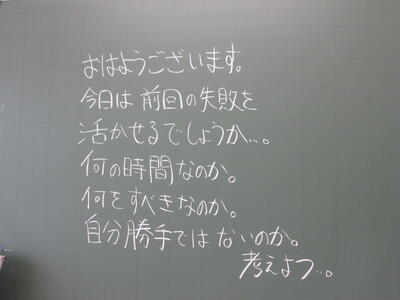 おはようございます。
今日は前回の失敗を
活かせるでしょうか…。
何の時間なのか。
何をすべきなのか。
自分勝手ではないのか。
考えよつ…。